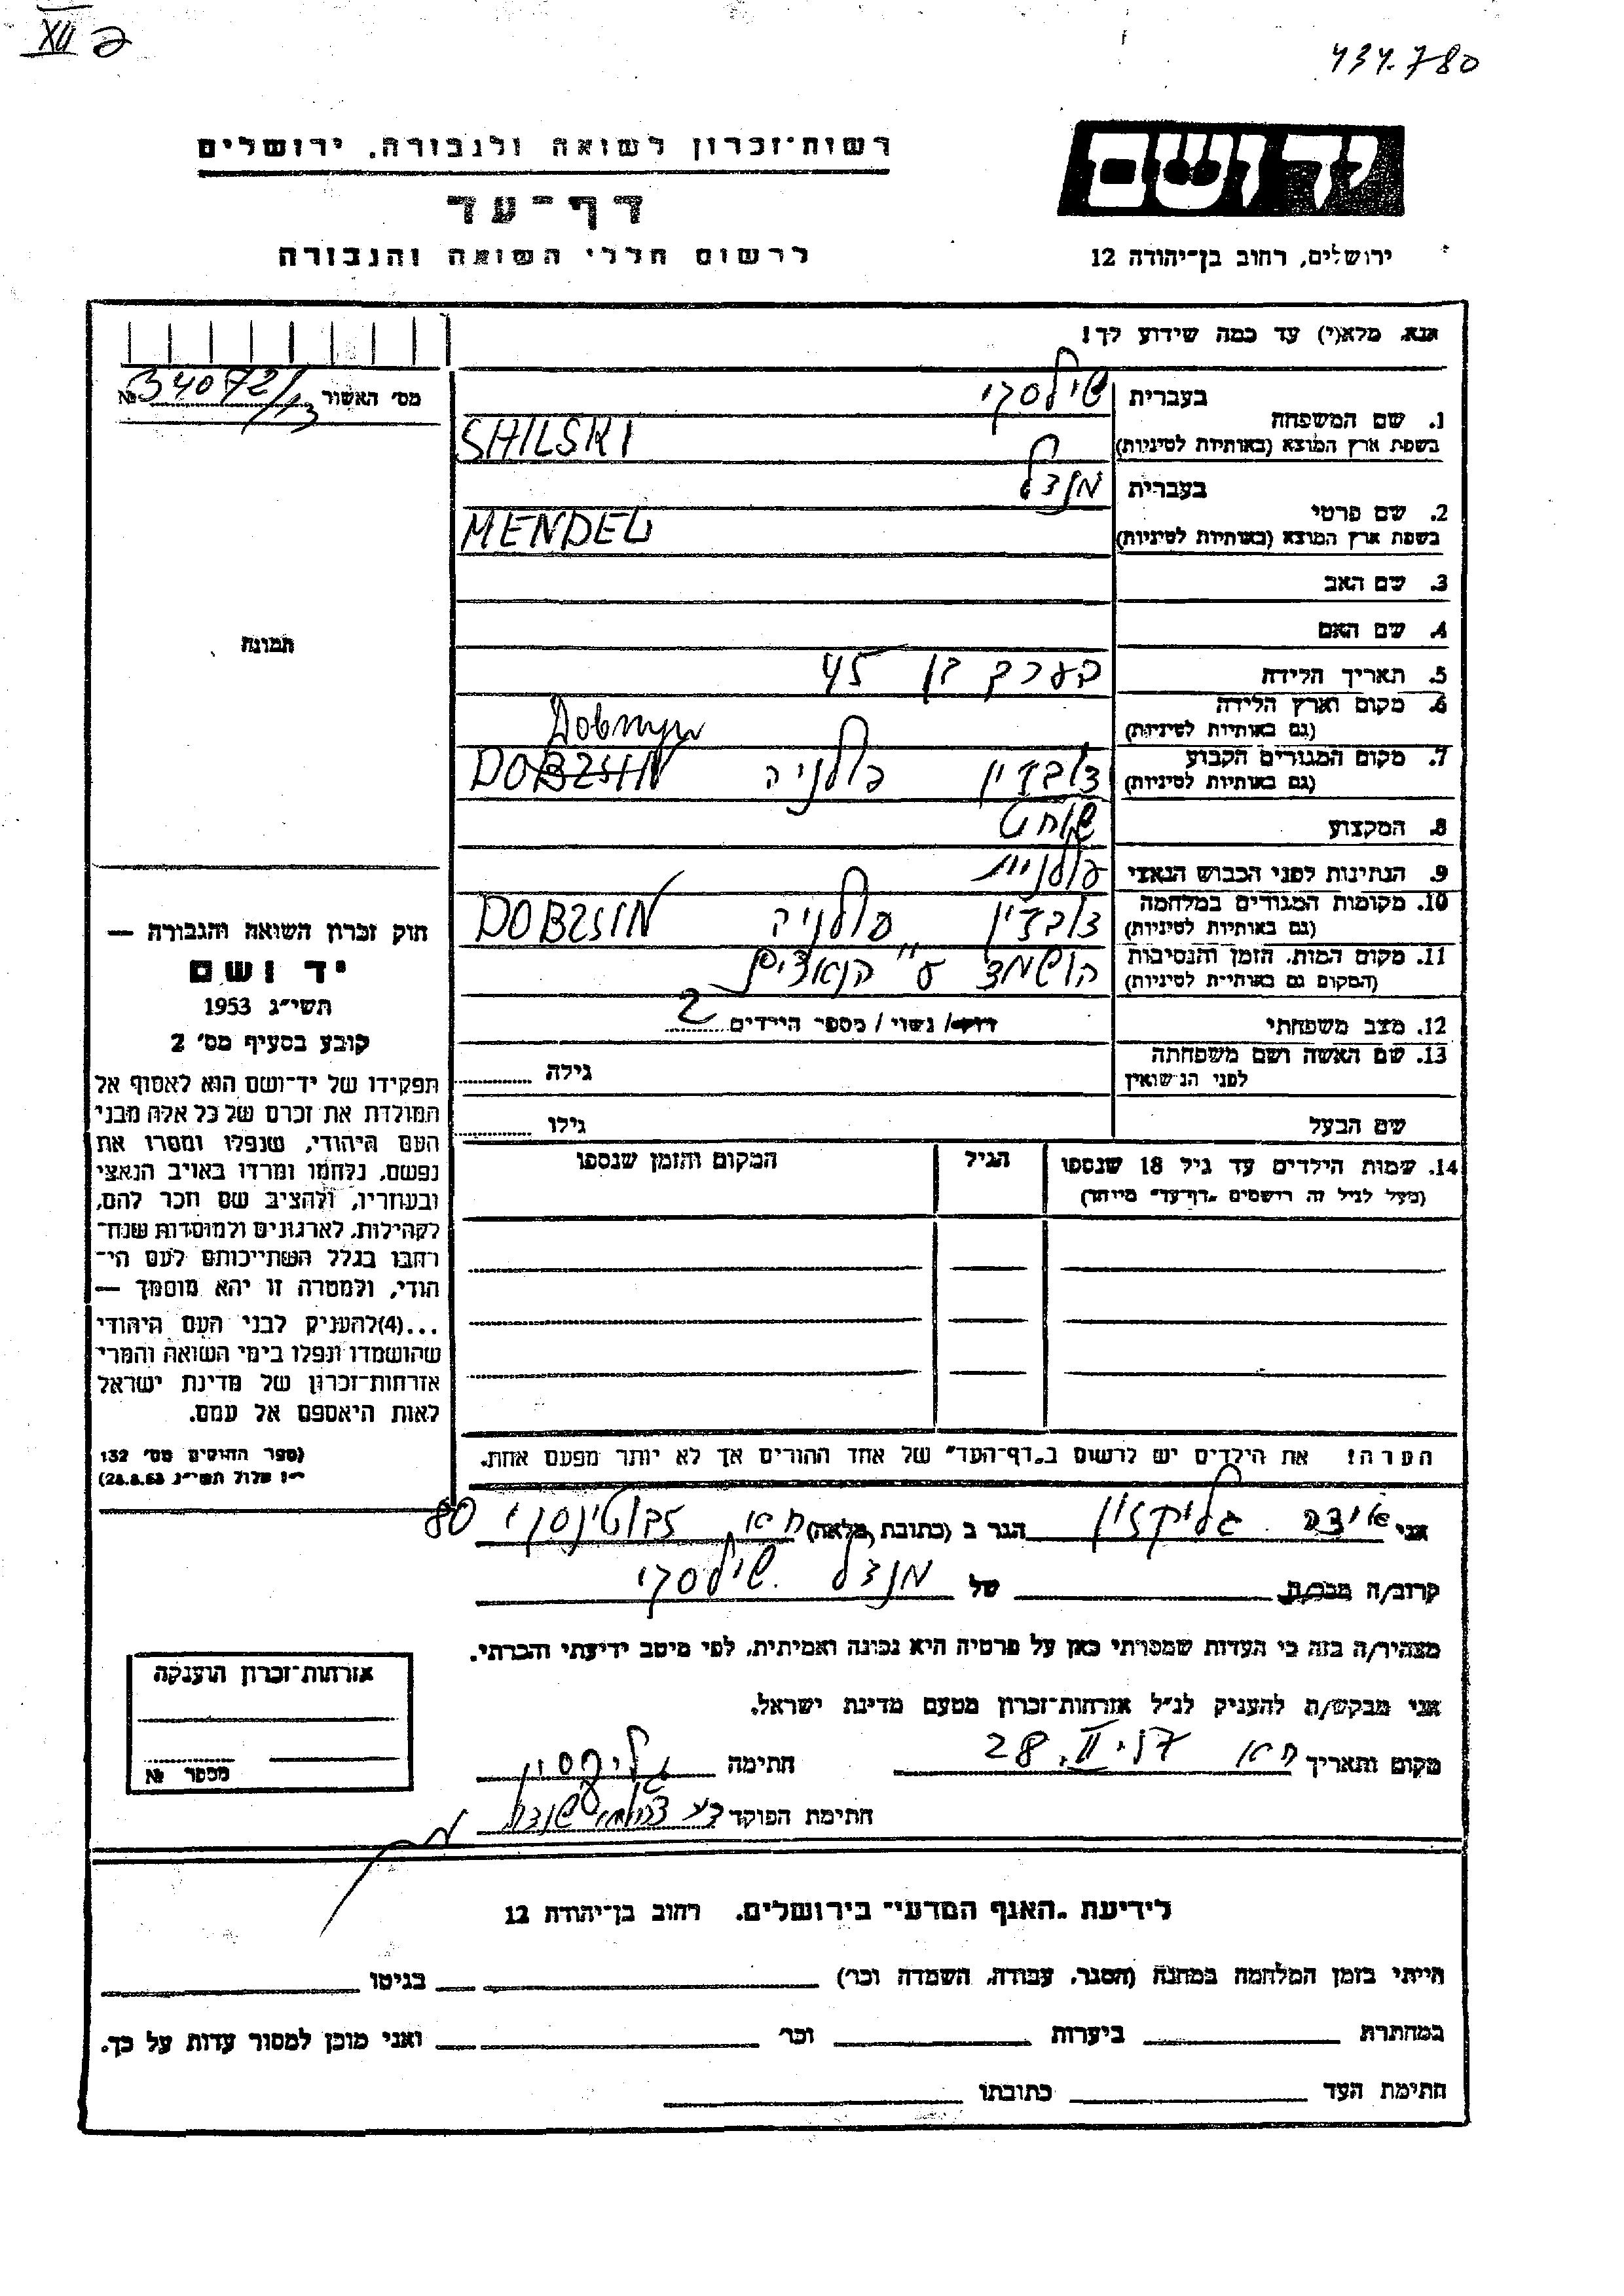 XII
434.780
רשות־זכרון לשואה ולגבורה, ירושלים
יד ושם
דף־עד
לרשום חללי השואה והגבורה
ירושלים, רחוב בן־יהודה 12
אנא, מלא(י) עד כמה שידוע לך!
מס' האשור № 34072/13
1. שם המשפחה
בעברית שילסקי
בשפת ארץ המוצא (באותיות לטיניות) SHILSKI
2. שם פרטי
בעברית מנדל
בשפת ארץ המוצא (באותיות לטיניות) MENDEL
3. שם האב
4. שם האם
תמונה
5. תאריך הלידה בערך בן 45
6. מקום וארץ הלידה
(גם באותיות לטיניות)
7. מקום המגורים הקבוע דוברזין פולניה DOBZSIN
(גם באותיות לטיניות)
8. המקצוע שוחט
9. הנתינות לפני הכבוש הנאצי פולנית
10. מקומות המגורים במלחמה דוברזין פולניה DOBZSIN
(גם באותיות לטיניות)
11. מקום המות, הזמן והנסיבות הושמד ע"י הנאצים
(המקום גם באותיות לטיניות)
12. מצב משפחתי רווק / נשוי / מספר הילדים 2
13. שם האשה ושם משפחתה
לפני הנישואין גילה
שם הבעל גילו
14. שמות הילדים עד גיל 18 שנספו הגיל המקום והזמן שנספו
(מעל לגיל זה רושמים "דף־עד" מיוחד)
הערה: את הילדים יש לרשום ב"דף־העד" של אחד ההורים אך לא יותר מפעם אחת.
חוק זכרון השואה והגבורה —
יד ושם
תשי"ג 1953
קובע בסעיף מס' 2
תפקידו של יד־ושם הוא לאסוף אל
המולדת את זכרם של כל אלה מבני
העם היהודי, שנפלו ומסרו את
נפשם, נלחמו ומרדו באויב הנאצי
ובעוזריו, ולהציב שם וזכר להם,
לקהילות, לארגונים ולמוסדות שנח־
רבו בגלל השתייכותם לעם הי־
הודי, ולמטרה זו יהא מוסמך —
...(4) להעניק לבני העם היהודי
שהושמדו ונפלו בימי השואה והמרי
אזרחות־זכרון של מדינת ישראל
לאות היאספם אל עמם.
(ספר החוקים מס' 132
י"ז אלול תשי"ג 28.8.53)
אני אידה גליקזון הגר ב (כתובת מלאה) ת"א, ז'בוטינסקי 80
קרוב/ה מכר/ה של מנדל שילסקי
מצהיר/ה בזה כי העדות שמסרתי כאן על פרטיה היא נכונה ואמיתית, לפי מיטב ידיעתי והכרתי.
אני מבקש/ת להעניק לנ"ל אזרחות־זכרון מטעם מדינת ישראל.
מקום ותאריך ת"א 28.II.57 חתימה
חתימת הפוקד
אזרחות־זכרון הוענקה
מספר №
לידיעת "האגף המדעי" בירושלים, רחוב בן־יהודה 12
הייתי בזמן המלחמה במחנה (הסגר, עבודה, השמדה וכו') בגיטו
במחתרת ביערות וכו' ואני מוכן למסור עדות על כך.
חתימת העד כתובתו